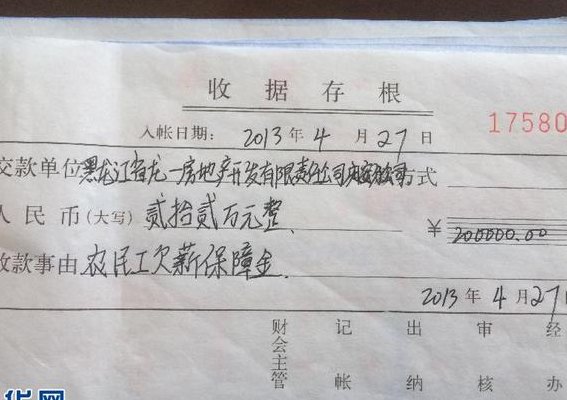 收据存根
入帐日期: 2013 年 4 月 27 日 17580
交款单位 黑龙江省龙一房地产开发有限责任公司 方式
人民币(大写) 贰拾贰万元整 ¥ 200000.00
收款事由 农民工欠薪保障金
2013 年 4 月 27 日
财会主管 记帐 出纳 审核 经办
华网